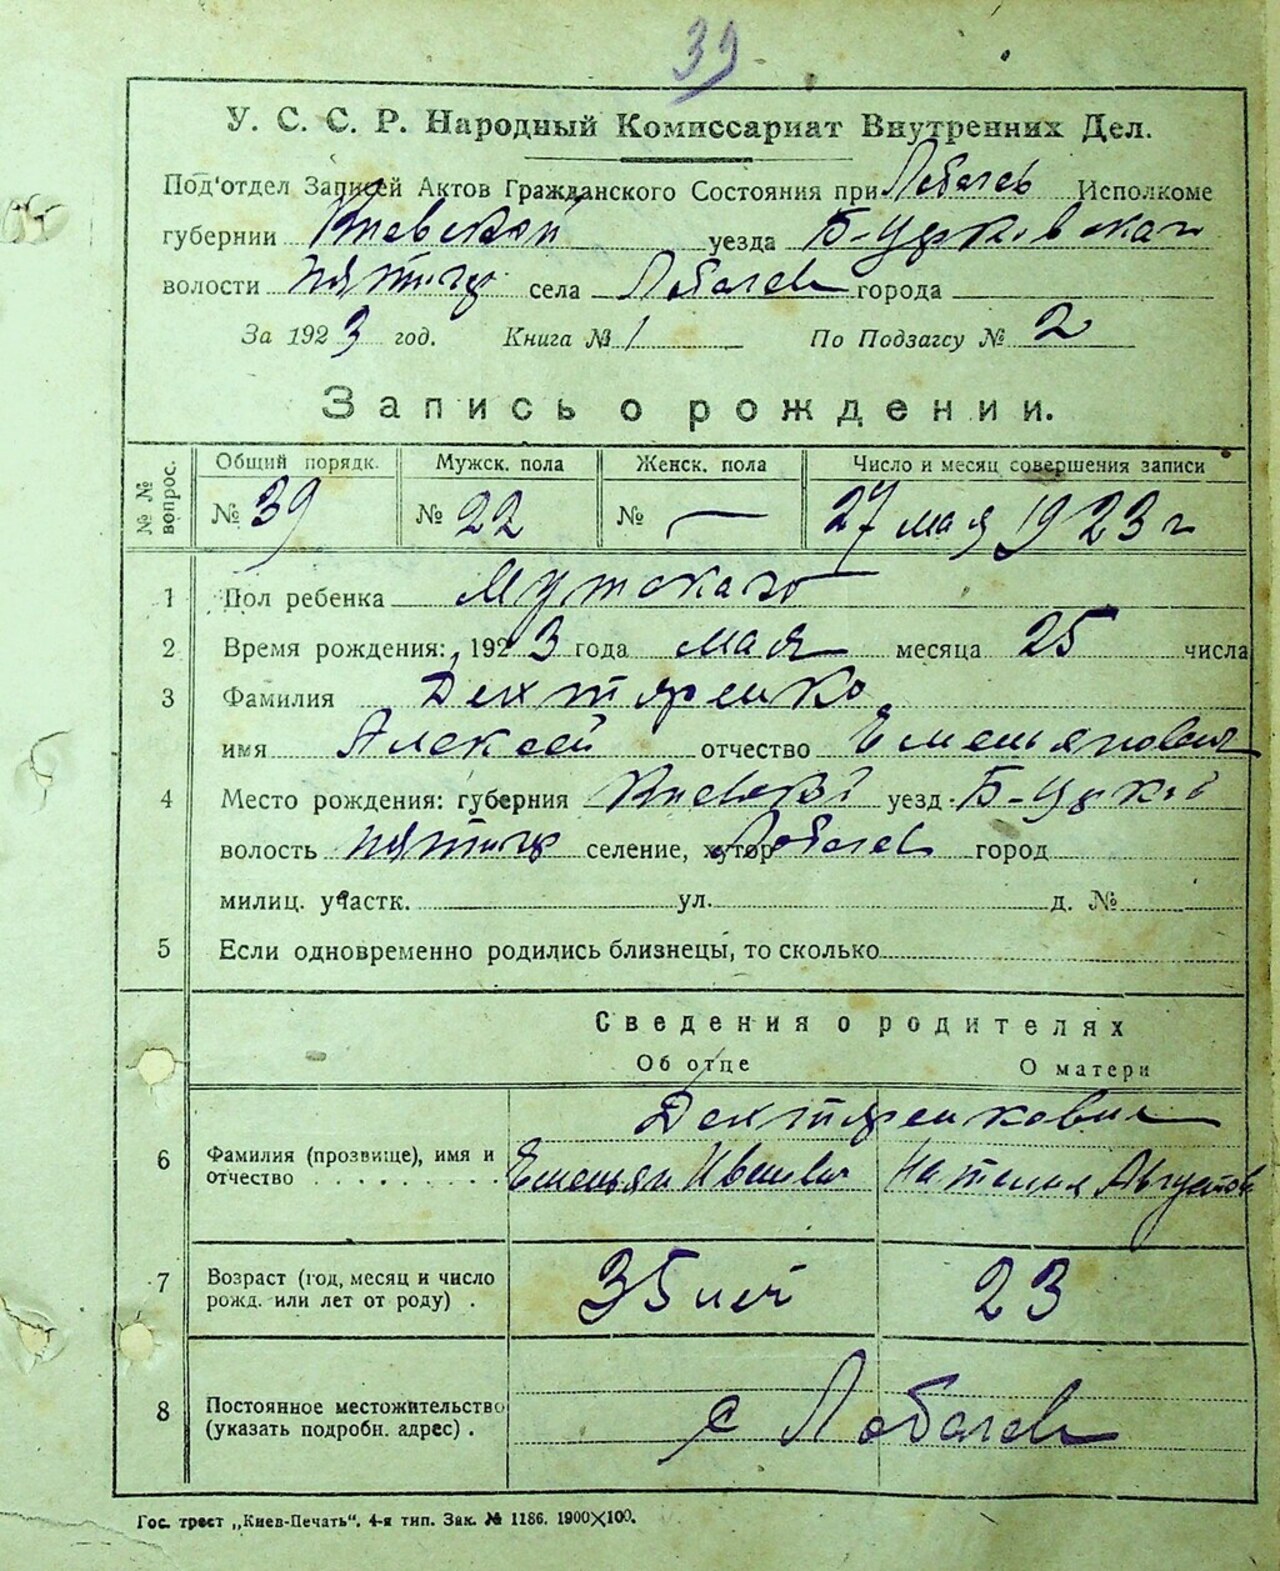 39
У. С. С. Р. Народный Комиссариат Внутренних Дел.
Под'отдел Записей Актов Гражданского Состояния при Лобачев Исполкоме
губернии Киевской уезда Б-Церковская
волости пятигр села Лобачев города
За 1923 год. Книга № 1 По Подзагсу № 2
Запись о рождении.
№ № вопрос. Общий порядк. Мужск. пола Женск. пола Число и месяц совершения записи
№ 39 № 22 № — 27 мая 1923 г
1 Пол ребенка Мужскаго
2 Время рождения: 1923 года мая месяца 25 числа
3 Фамилия Дехтяренко
имя Алексей отчество Емельянович
4 Место рождения: губерния Киевской уезд Б-Церков
волость пятигр селение, хутор Лобачев город
милиц. участк. ул. д. №
5 Если одновременно родились близнецы, то сколько
Сведения о родителях
Об отце О матери
Дехтяренкович
6 Фамилия (прозвище), имя и отчество Емельян Иванович Наталия Августов
7 Возраст (год, месяц и число рожд. или лет от роду) . 35 лет 23
8 Постоянное местожительство (указать подробн. адрес) . с Лобачев
Гос. трест „Киев-Печать". 4-я тип. Зак. № 1186. 1900×100.